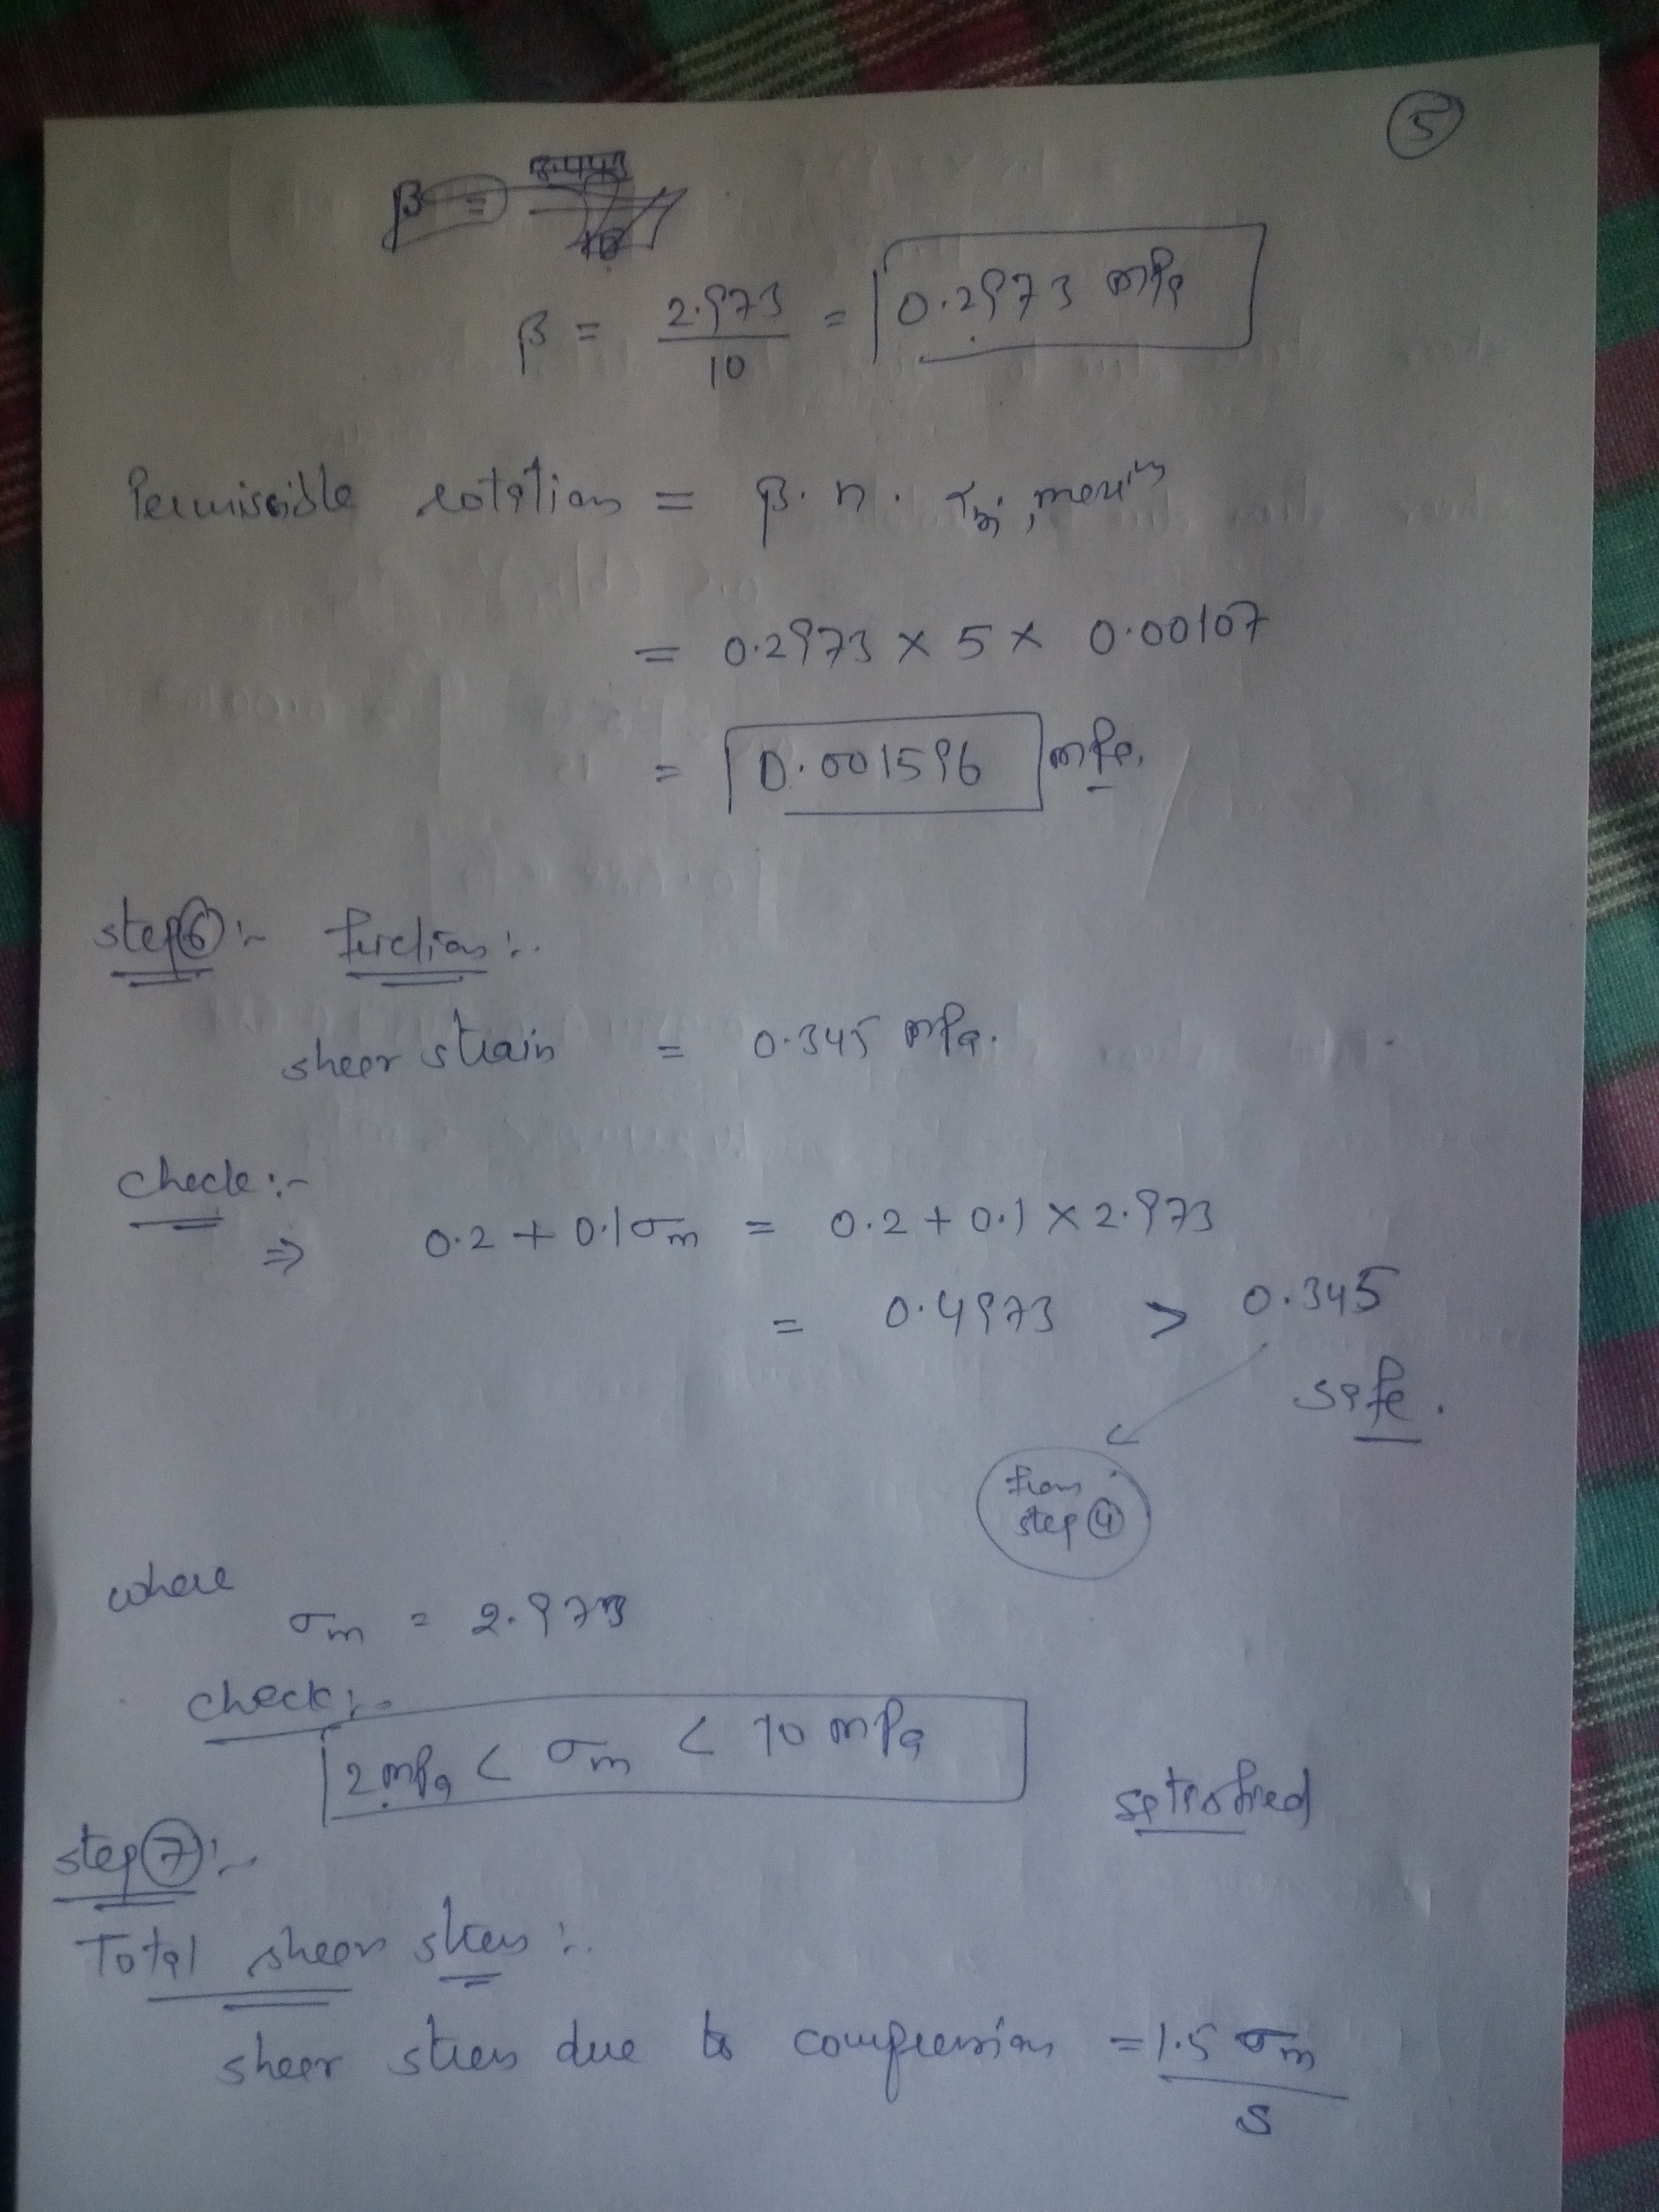 5
β = 2.973 / 10 = 0.2973 mPa
Permissible rotation = β . n .
= 0.2973 × 5 × 0.00107
= 0.001596 mPa.
step 6 :- friction :-
sheer strain = 0.345 mPa.
check :-
⇒ 0.2 + 0.1 σm = 0.2 + 0.1 × 2.973
= 0.4973 > 0.345
safe.
from
step 4
where
σm = 2.973
check :-
2 mPa < σm < 10 mPa
satisfied
step 7 :-
Total shear stress :-
sheer stress due to compression = 1.5 σm / S